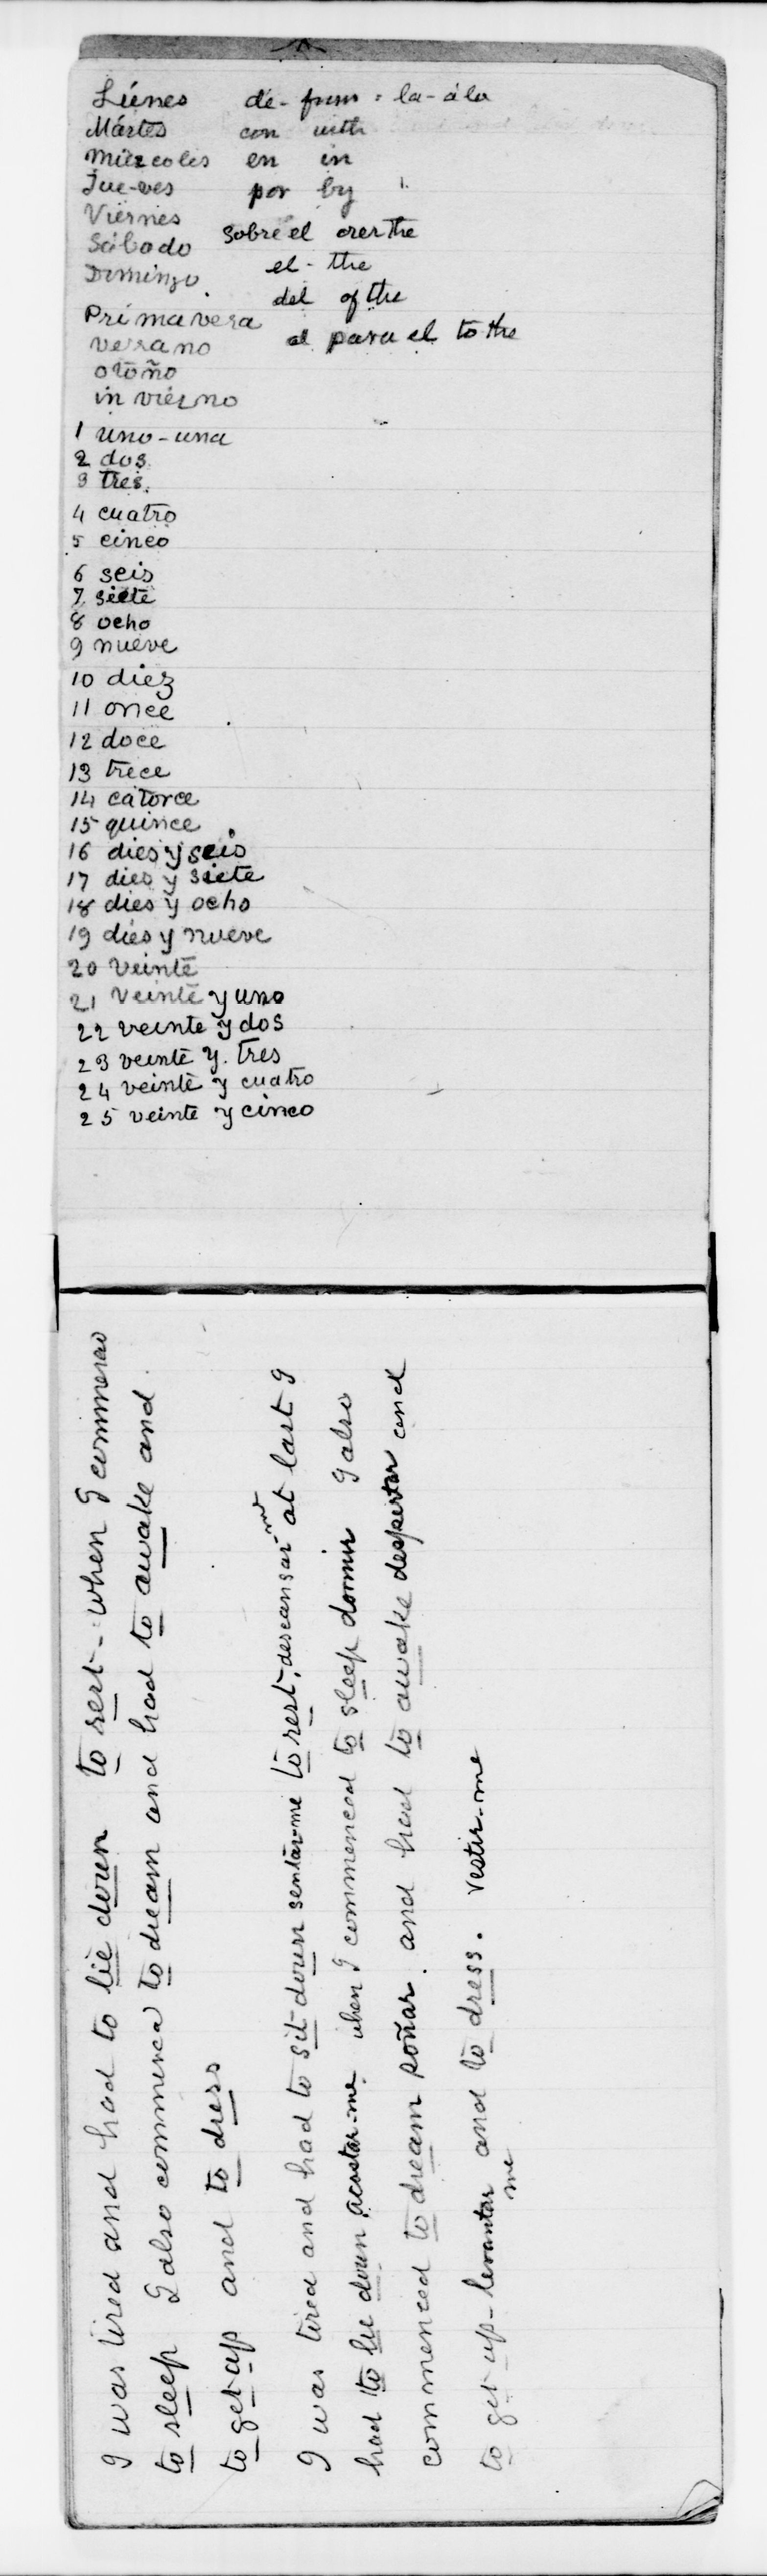 Lúnes de- from = la- á la
Mártes con with
Miércoles en in
Jue-ves por by
Viernes
Sábado sobre el over the
Domingo el - the
del of the
Primavera
verano al para el to the
otoño
in viérno
1 uno-una
2 dos
3 tres.
4 cuatro
5 cinco
6 seis
7 siete
8 ocho
9 nueve
10 diez
11 once
12 doce
13 trece
14 catorce
15 quince
16 dies y seis
17 dies y siete
18 dies y ocho
19 dies y nueve
20 veinte
21 veinte y uno
22 veinte y dos
23 veinte y. tres
24 veinte y cuatro
25 veinte y cinco
I was tired and had to lie down to rest - when I commence
to sleep I also commence to dream and had to awake and
to get up and to dress
I was tired and had to sit down sentár-me to rest, descansar-me at last I
had to lie down acostar-me. when I commenced to sleep dormir I also
commenced to dream soñar. and had to awake despertar and
to get up - levantar me and to dress. vestir-me